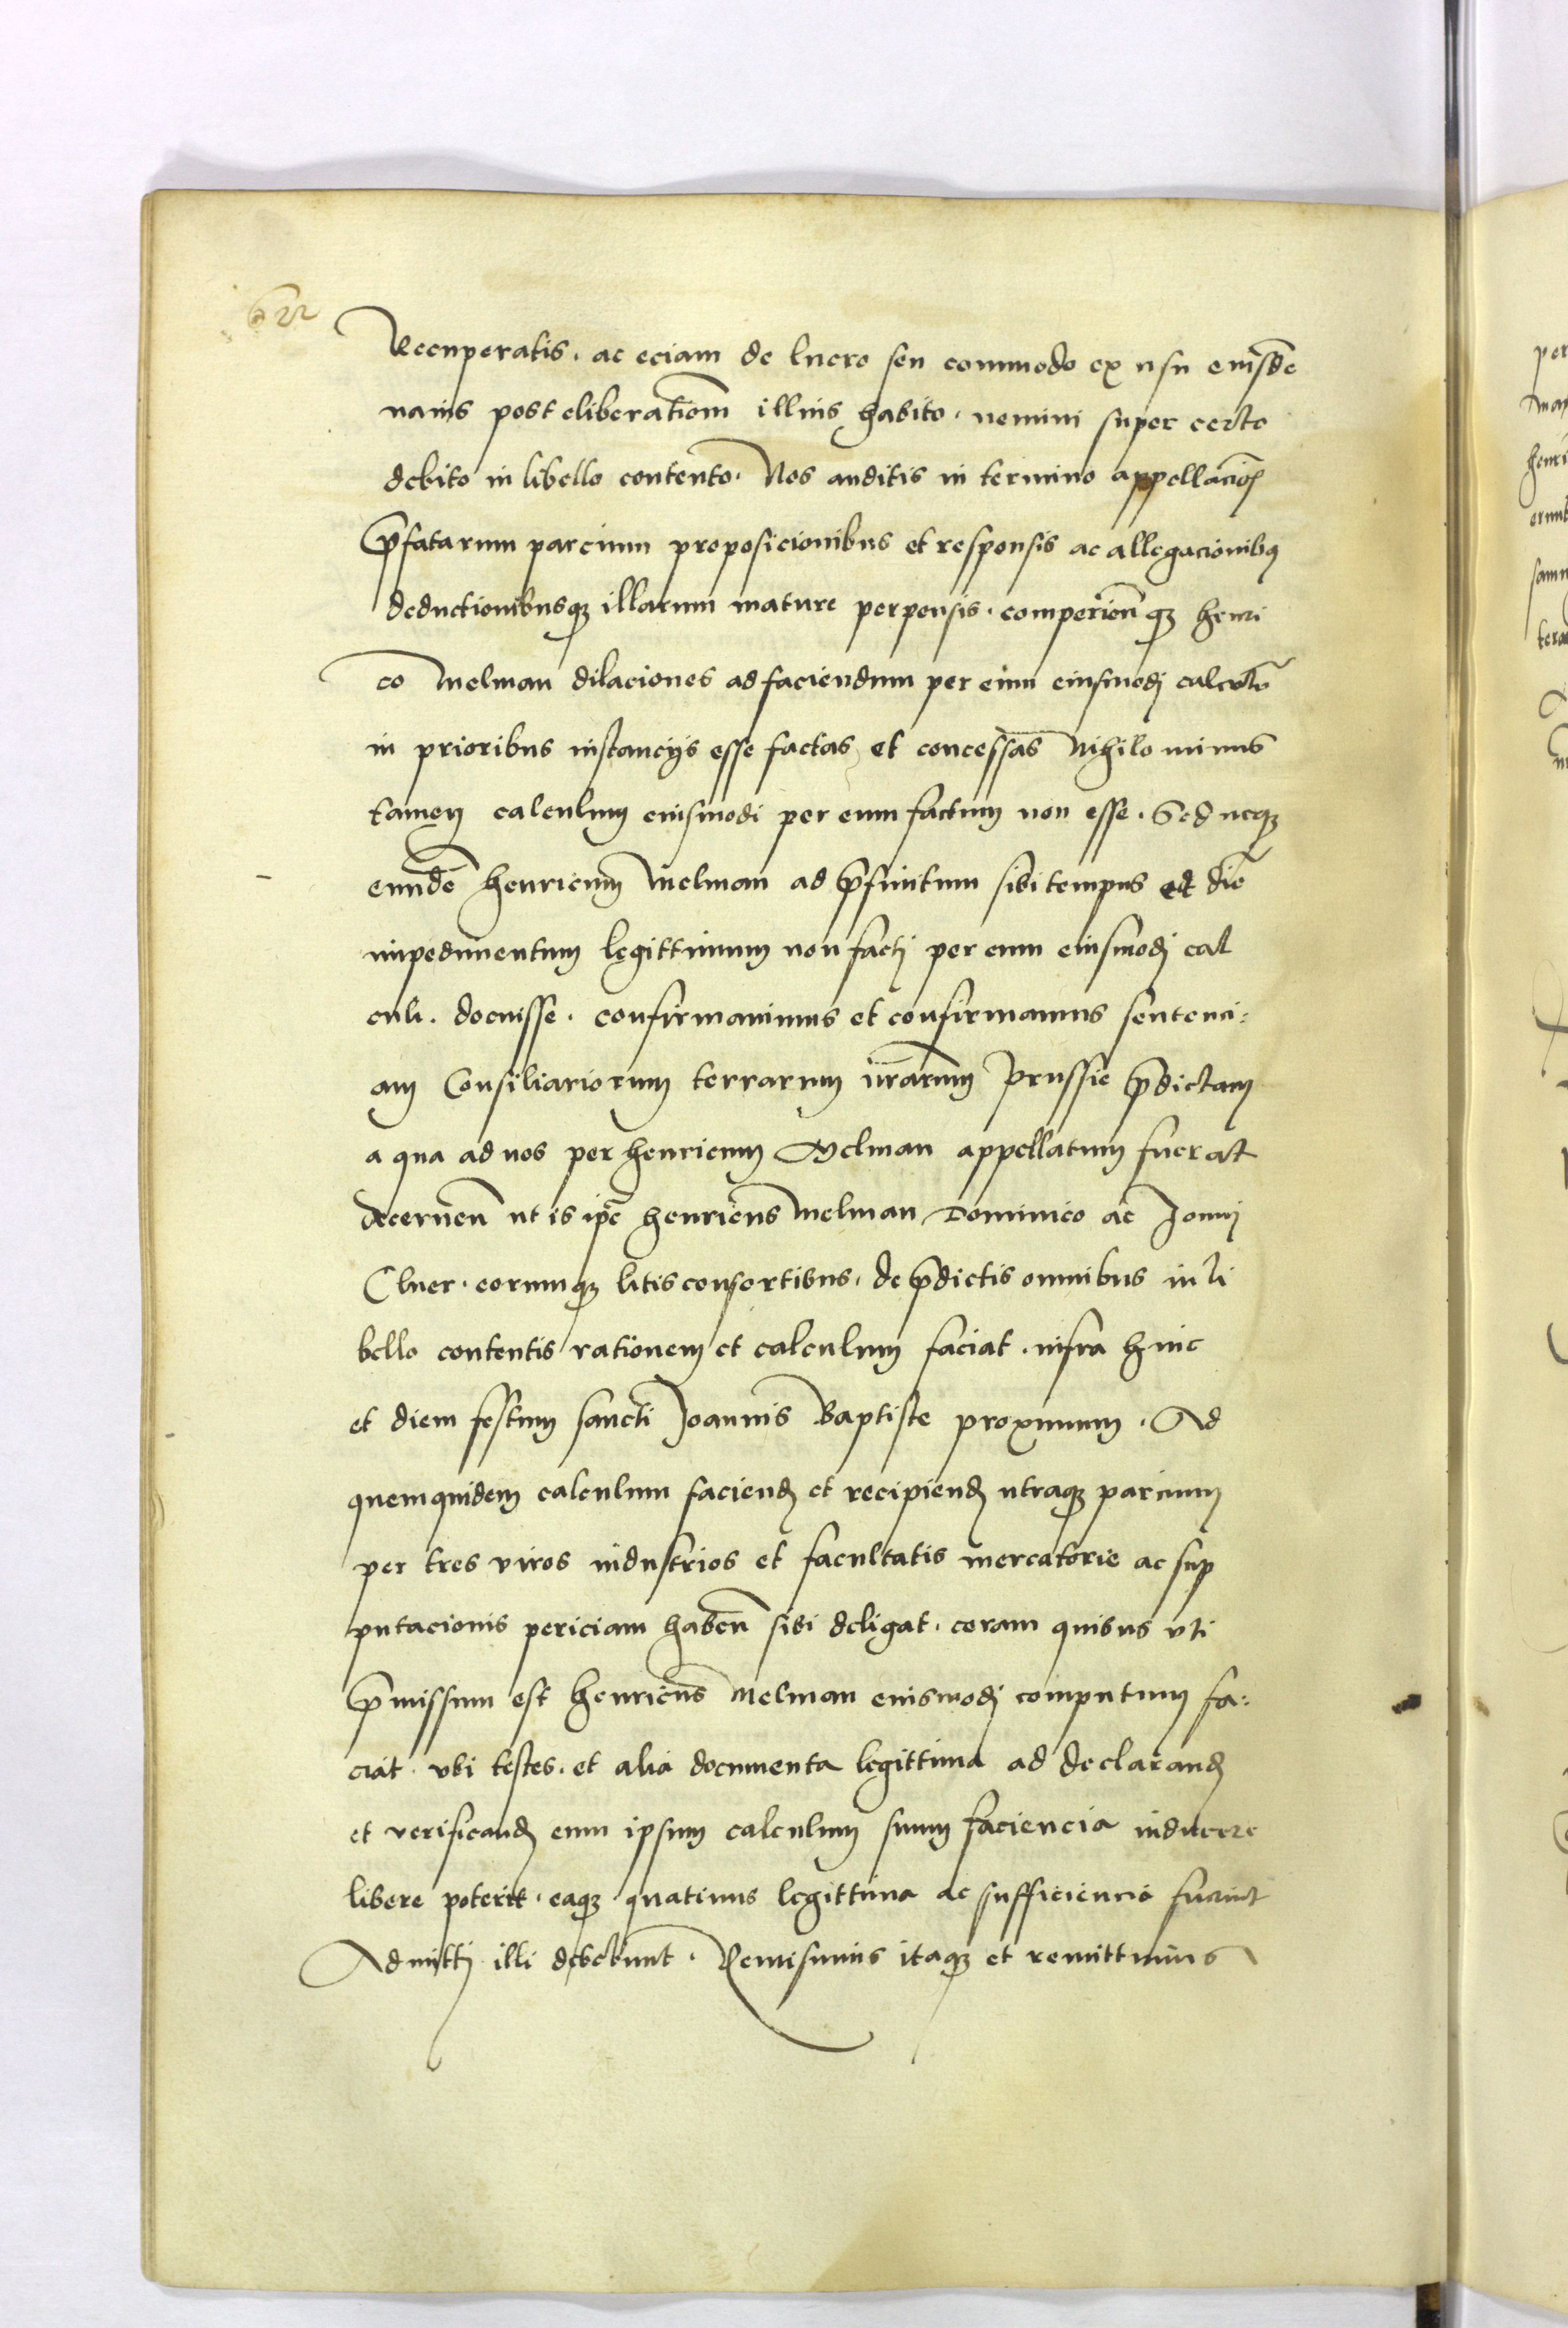 622
Recuperatis . ac eciam de lucro seu commodo ex usu eiusdē
nauis post eliberationē illius habito . nemini super certo
debito in libello contento . Nos auditis in termino appellacioī
p̄fatarum parcium proposicionibus et responsis ac allegacionibꝰ
deductionibusqꝫ illarum mature perpensis . comperieñ qꝫ henri
co Melman dilaciones ad faciendum per eum eiusmodj calculū
in prioribus instancijs esse factas et concessas Nihilo minus
tamen calculum eiusmodi per eum factum non esse . Sed neqꝫ
eundē henricum Melman ad p̄finitum sibi tempus et diē
impedimentum legittimum non factj per eum eiusmodj cal
culi . docuisse . confirmauimus et confirmamus sentenci:
am Consiliariorum terrarum nr̄arum Prussie p̄dictam
a qua ad nos per henricum Melman appellatum fuerat
decerneñ ut is ip̄e henricus Melman Dominico ac Jonnj
Cluer . eorumqꝫ litis consortibus . de p̄dictis omnibus in li
bello contentis rationem et calculum faciat . infra hinc
et diem festum sancti Joannis Baptiste proximum . Ad
quemquidem calculum faciend̄ et recipiend̄ utraqꝫ parcium
per tres viros industrios et facultatis mercatorie ac sup
putacionis periciam habeñ sibi deligat . coram quibus uti
p̄missum est henricus Melman eiusmodj computum fa:
ciat . ubi testes . et alia documenta legittima ad declarand̄
et verificand̄ eum ipsum calculum suum faciencia inducere
libere poterit . eaqꝫ quatinus legittima ac sufficiencia fuerint
Admittj illi debebunt . Remisimus itaqꝫ et remittimus